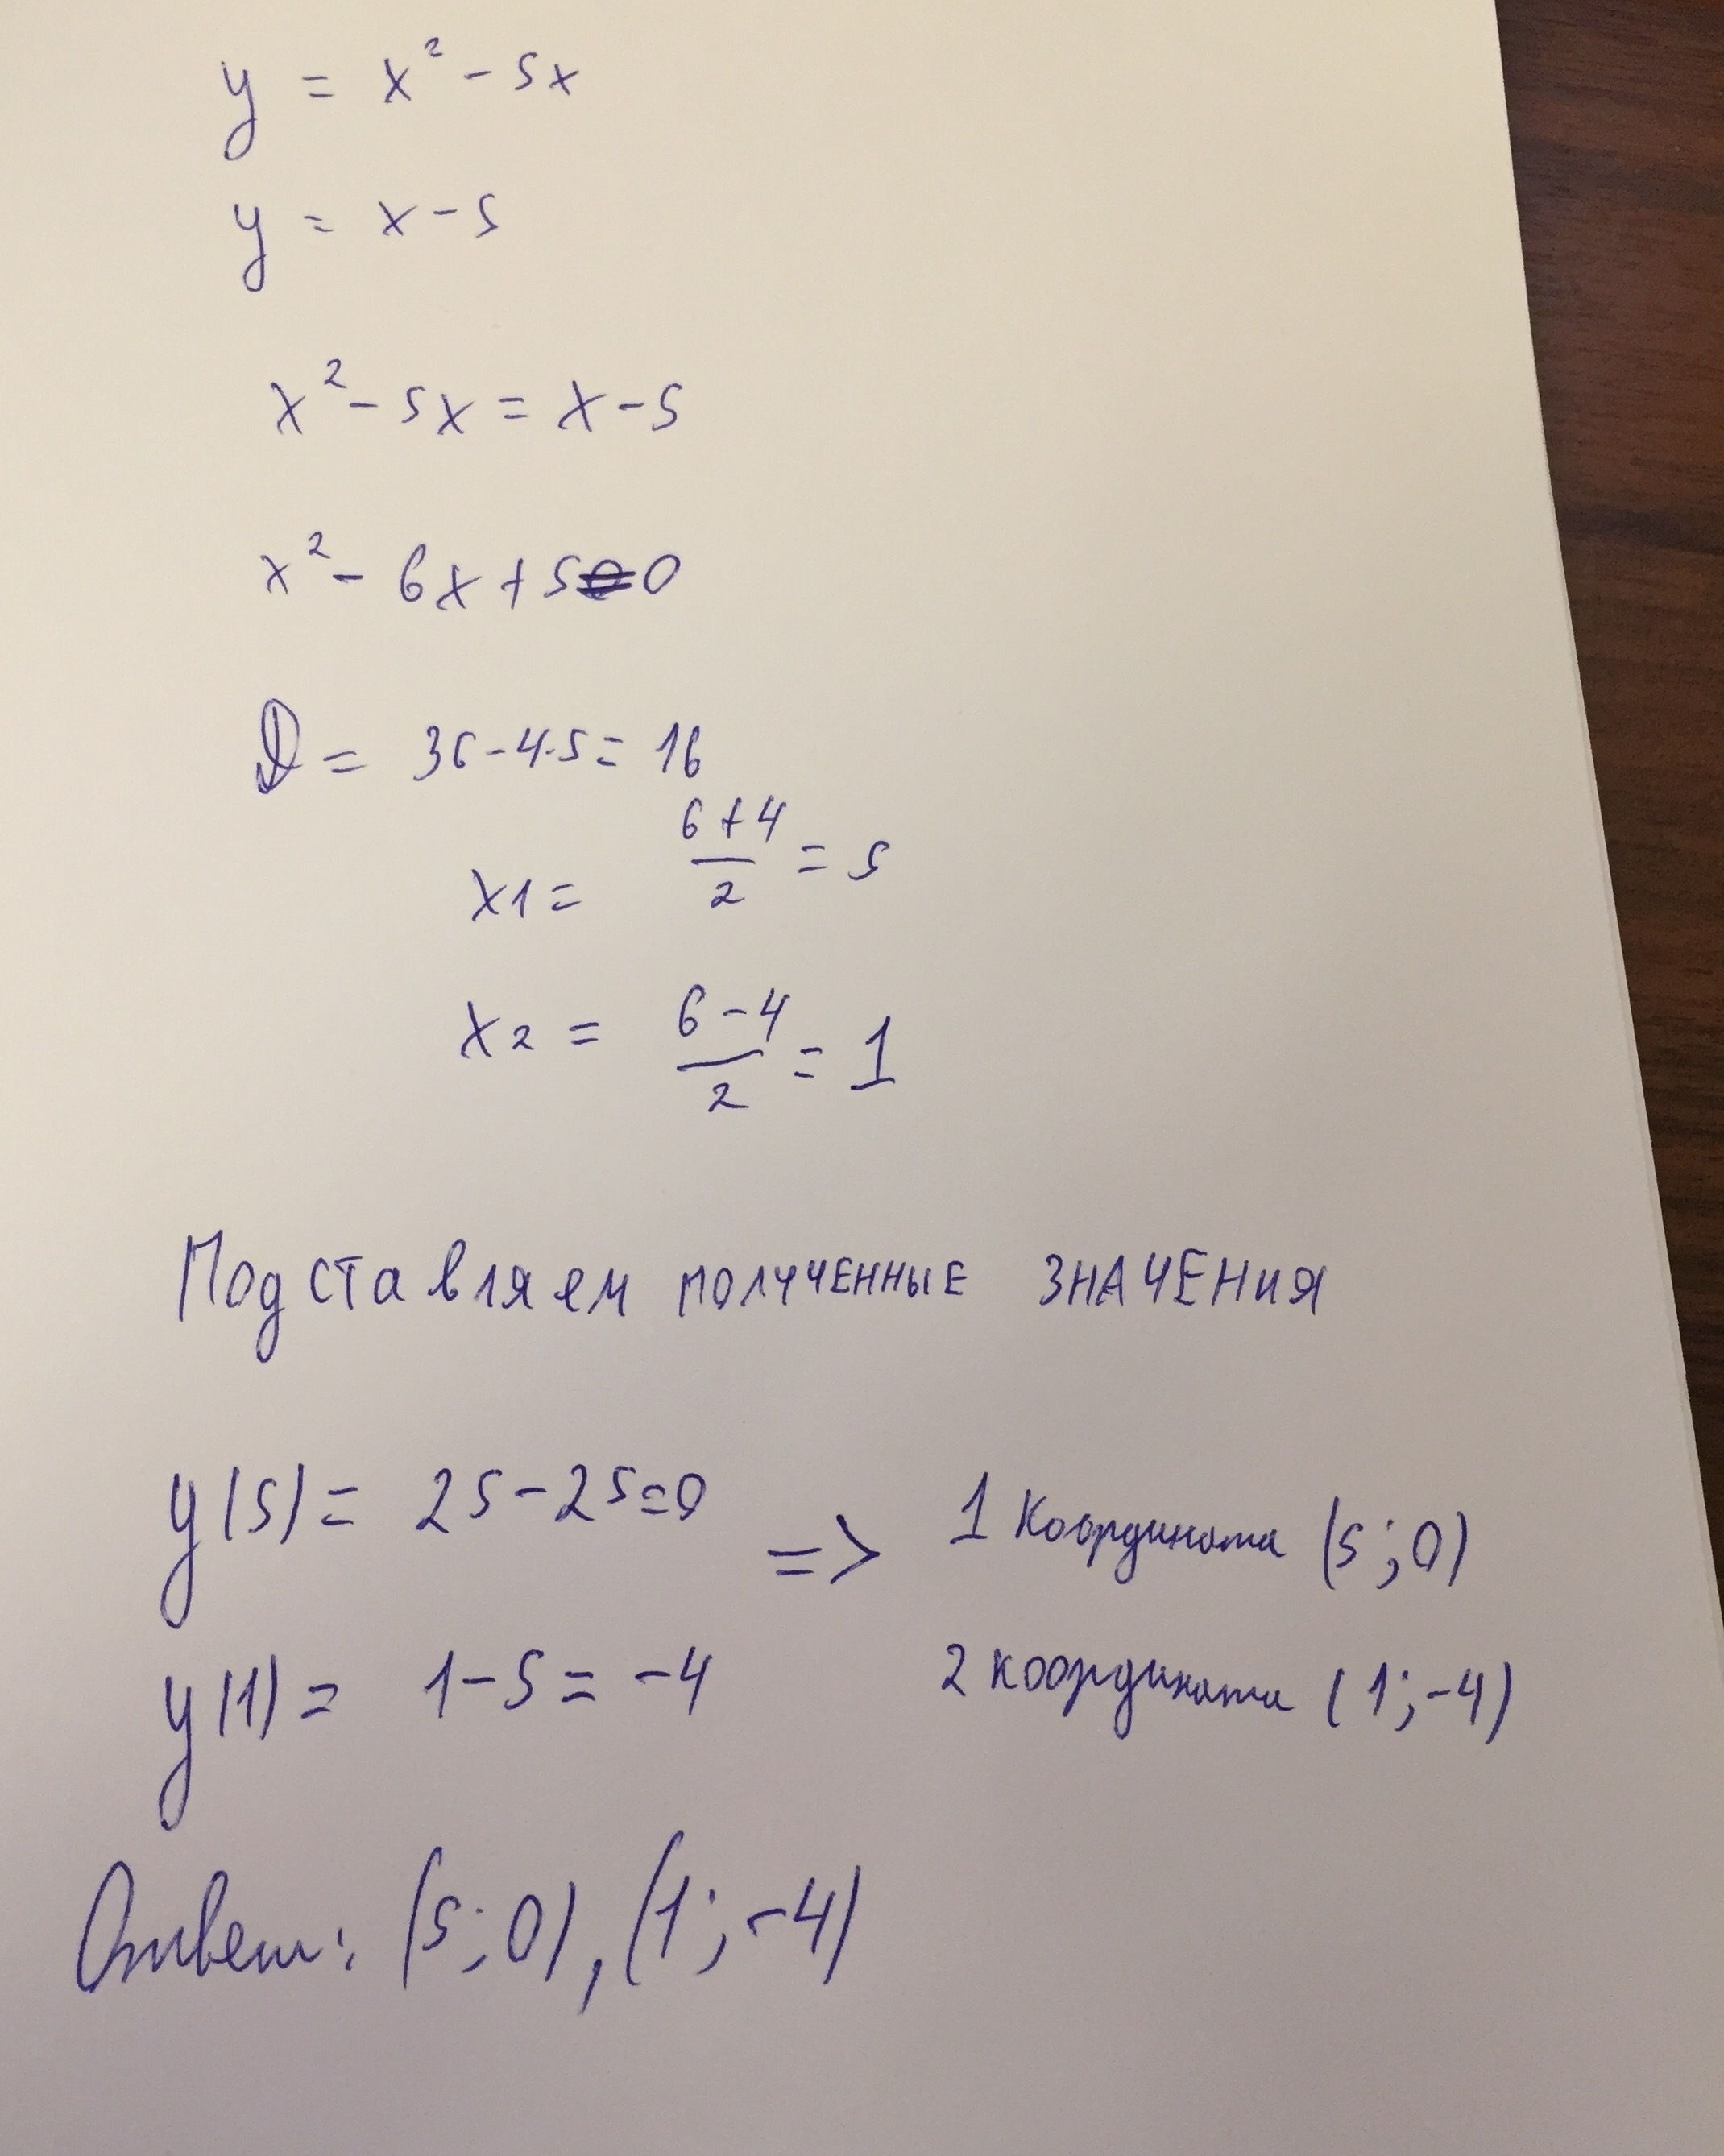 y = x² - 5x
y = x - 5
x² - 5x = x - 5
x² - 6x + 5 = 0
D = 36 - 4·5 = 16
x1 = (6 + 4)/2 = 5
x2 = (6 - 4)/2 = 1
Подставляем полученные значения
y(5) = 25 - 25 = 0 => 1 координата (5; 0)
y(1) = 1 - 5 = -4 2 координата (1; -4)
Ответ: (5; 0), (1; -4)